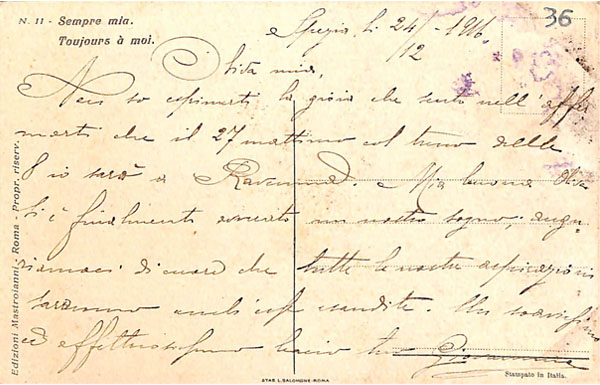 N. 11 - Sempre mia.
Toujours à moi.
36
Spezia, li 24/12 - 1916
mia,
Non so esprimerti la gioia che sento nell'affer
marti che il 27 mattino col treno delle
8 io sarò a Ravenna. Mia buona
si è finalmente avverato un nostro sogno; augu
riamoci di cuore che tutte le nostre aspirazioni
saranno così esaudite. Un
ed affettuosissimo bacio tuo
Edizioni Mastroianni - Roma - Propr. riserv.
STAB. L. SALOMONE - ROMA
Stampato in Italia.